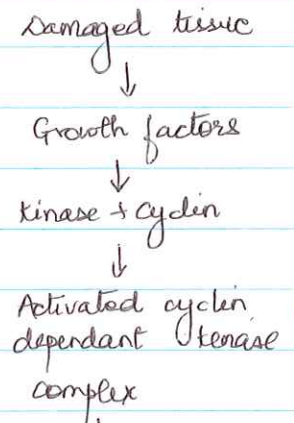 Damaged tissue
↓
Growth factors
↓
Kinase + Cyclin
↓
Activated cyclin
dependant kenase
complex